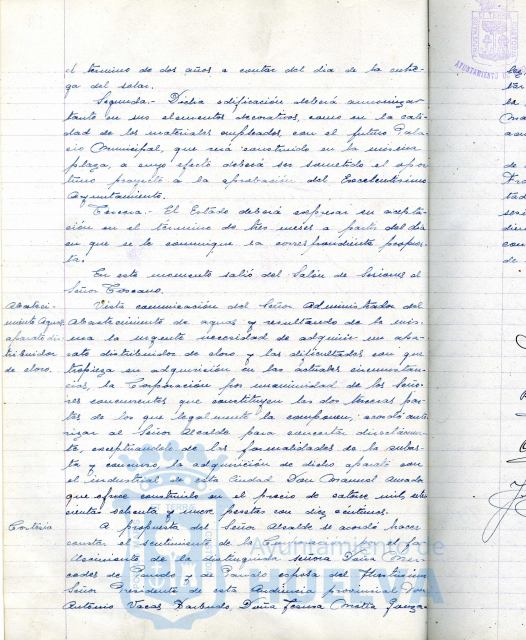 el término de dos años a contar del dia de la entre-
ga del solar.
Segunda.- Dicha edificación deberá armonizar
tanto en sus elementos decorativos, como en la cali-
dad de los materiales empleados, con el futuro Pala-
cio Municipal, que será construido en la misma
plaza, a cuyo efecto deberá ser sometido el opor-
tuno proyecto a la aprobación del Excelentísimo
Ayuntamiento.
Tercera.- El Estado deberá expresar su acepta-
ción en el término de tres meses a partir del dia
en que se le comunique la correspondiente propues-
ta.
En este momento salió del Salón de Sesiones el
Señor Toscano.
Abasteci-
miento Aguas
aparato dis-
tribuidor
de cloro.
Vista comunicación del Señor Administrador del
Abastecimiento de aguas y resultando de la mis-
ma la urgente necesidad de adquirir un apa-
rato distribuidor de cloro y las dificultades con que
tropieza su adquisición en las actuales circunstan-
cias, la Corporación por unanimidad de los Seño-
res concurrentes que constituyen las dos terceras par-
tes de los que legalmente la componen; acordó auto-
rizar al Señor Alcalde para concertar directamen-
te, exceptuándole de las formalidades de la subas-
ta y concurso, la adquisición de dicho aparato con
el industrial de esta Ciudad Don Manuel Amado
que ofrece construirlo en el precio de catorce mil
cientas ochenta y nueve pesetas con diez céntimos.
Cortesía
A propuesta del Señor Alcalde se acordó hacer
constar el sentimiento de la el fa-
llecimiento de la distinguida señora Doña Mer-
cedes de esposa del Ilustrísimo
Señor Presidente de esta Audiencia provincial Don
Antonio Vacas Doña
Ayuntamiento de
HUELVA
AYUNTAMIENTO DE